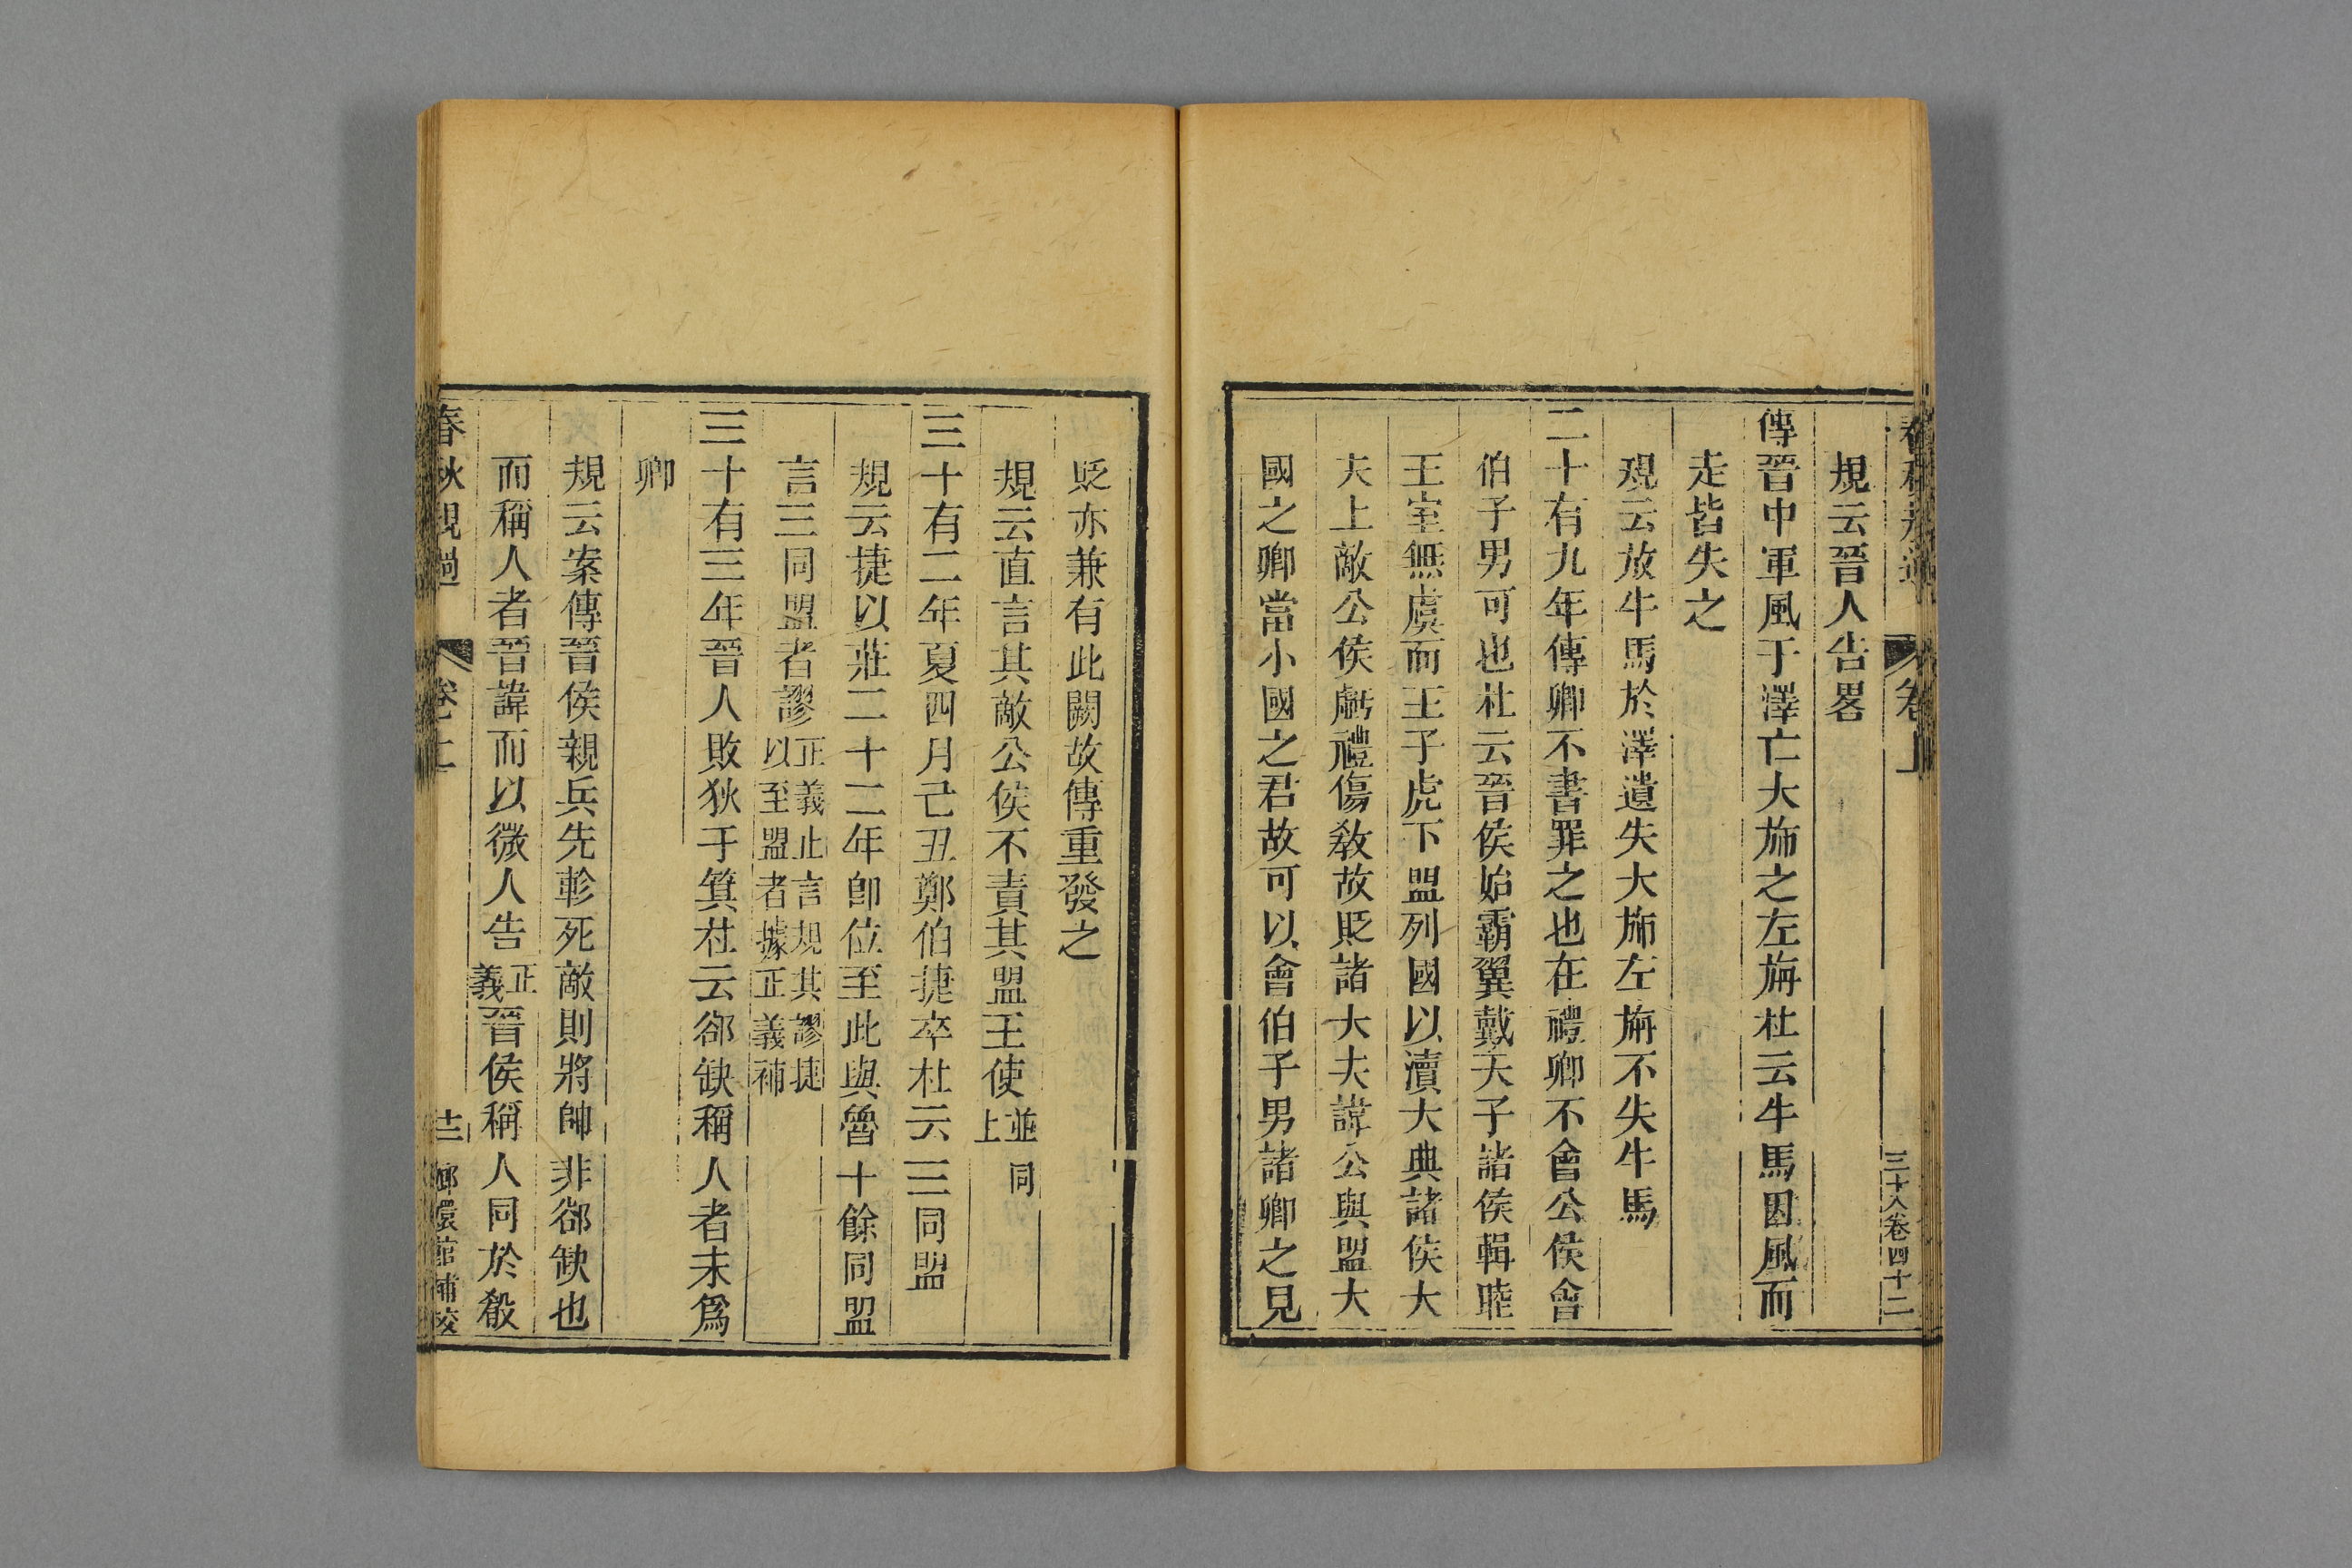 春秋規過 卷上 三十八卷四十二
規云晉人告畧
傳晉中軍風于澤亡大斾之左旃杜云牛馬因風而
走皆失之
規云放牛馬於澤遺失大斾左旃不失牛馬
二十有九年傳卿不書罪之也在禮卿不會公侯會
伯子男可也杜云晉侯始霸翼戴天子諸侯輯睦
王室無虞而王子虎下盟列國以瀆大典諸侯大
夫上敵公侯虧禮傷敎故貶諸大夫諱公與盟大
國之卿當小國之君故可以會伯子男諸卿之見
貶亦兼有此闕故傳重發之
規云直言其敵公侯不責其盟王使並同上
三十有二年夏四月己丑鄭伯捷卒杜云三同盟
規云捷以莊二十二年卽位至此與魯十餘同盟
言三同盟者謬正義止言規其謬捷以至盟者據正義補
三十有三年晉人敗狄于箕杜云郤缺稱人者未爲
卿
規云案傳晉侯親兵先軫死敵則將帥非郤缺也
而稱人者晉諱而以微人告正義晉侯稱人同於殽
春秋規過 卷上 十三 嫏嬛館補校